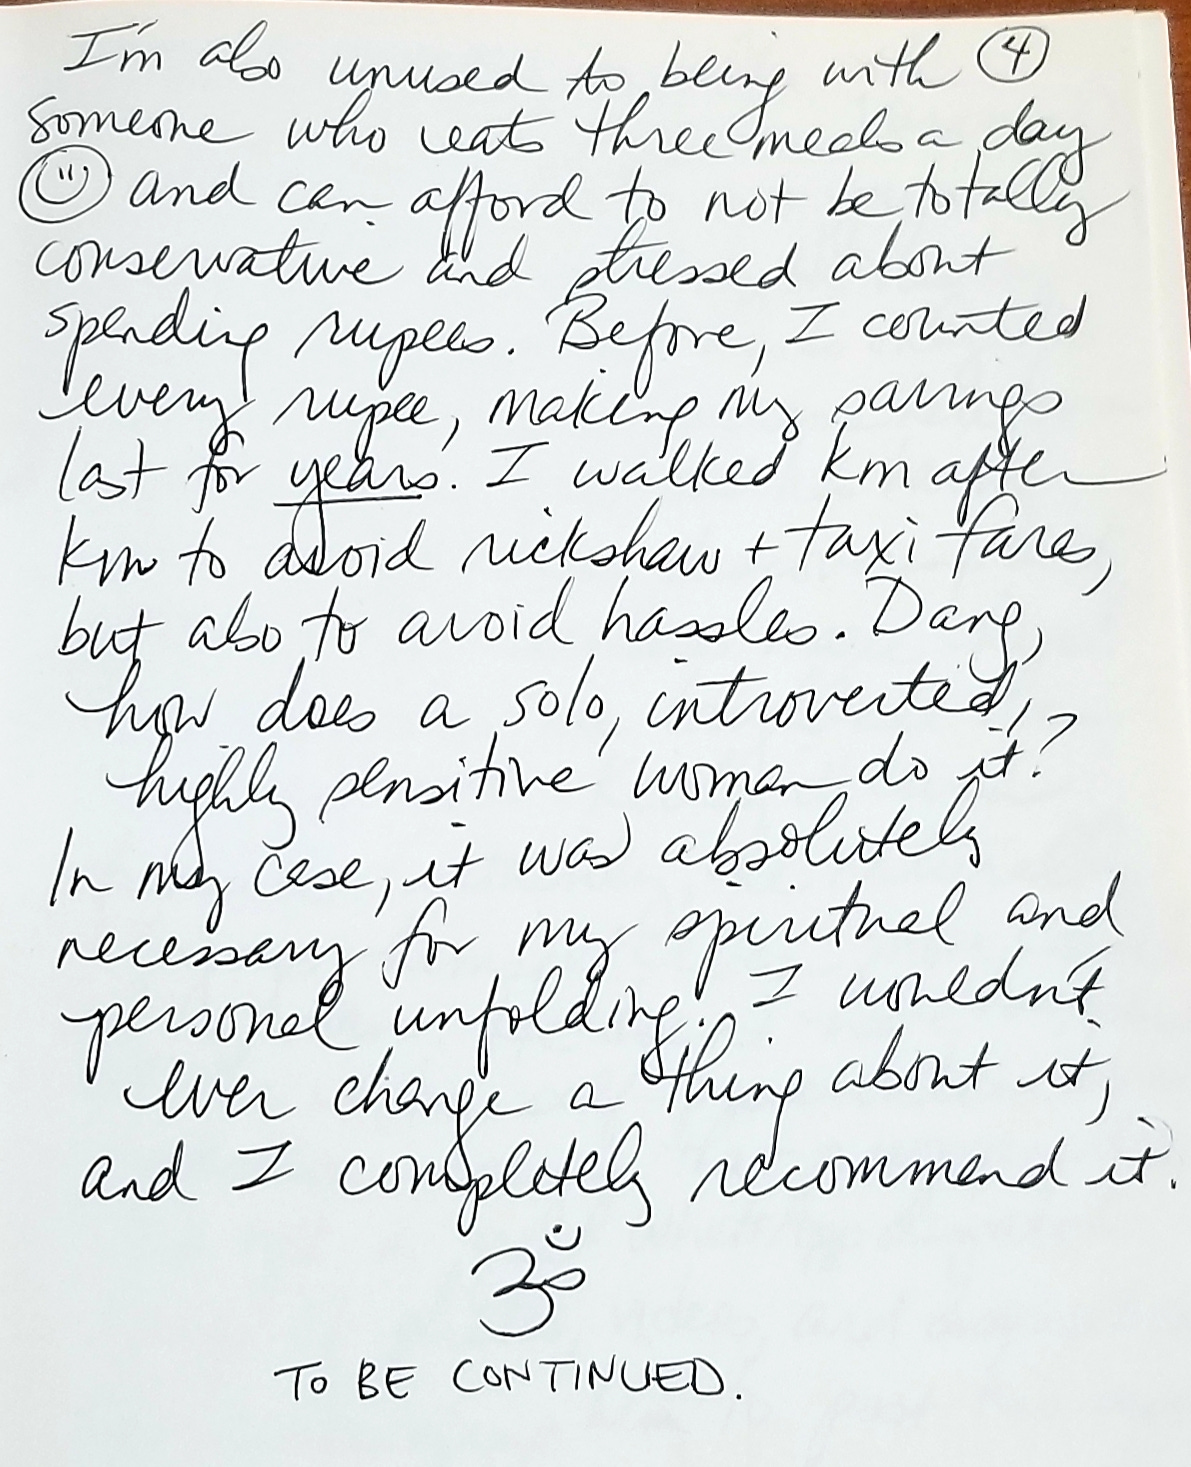 I'm also unused to being with ④
someone who eats three meals a day
and can afford to not be totally
conservative and stressed about
spending rupees. Before, I counted
every rupee, making my savings
last for years. I walked km after
km to avoid rickshaw + taxi fares,
but also to avoid hassles. Dang,
how does a solo, introverted,
highly sensitive woman do it?
In my case, it was absolutely
necessary for my spiritual and
personal unfolding. I wouldn't
ever change a thing about it,
and I completely recommend it.
ॐ
TO BE CONTINUED.